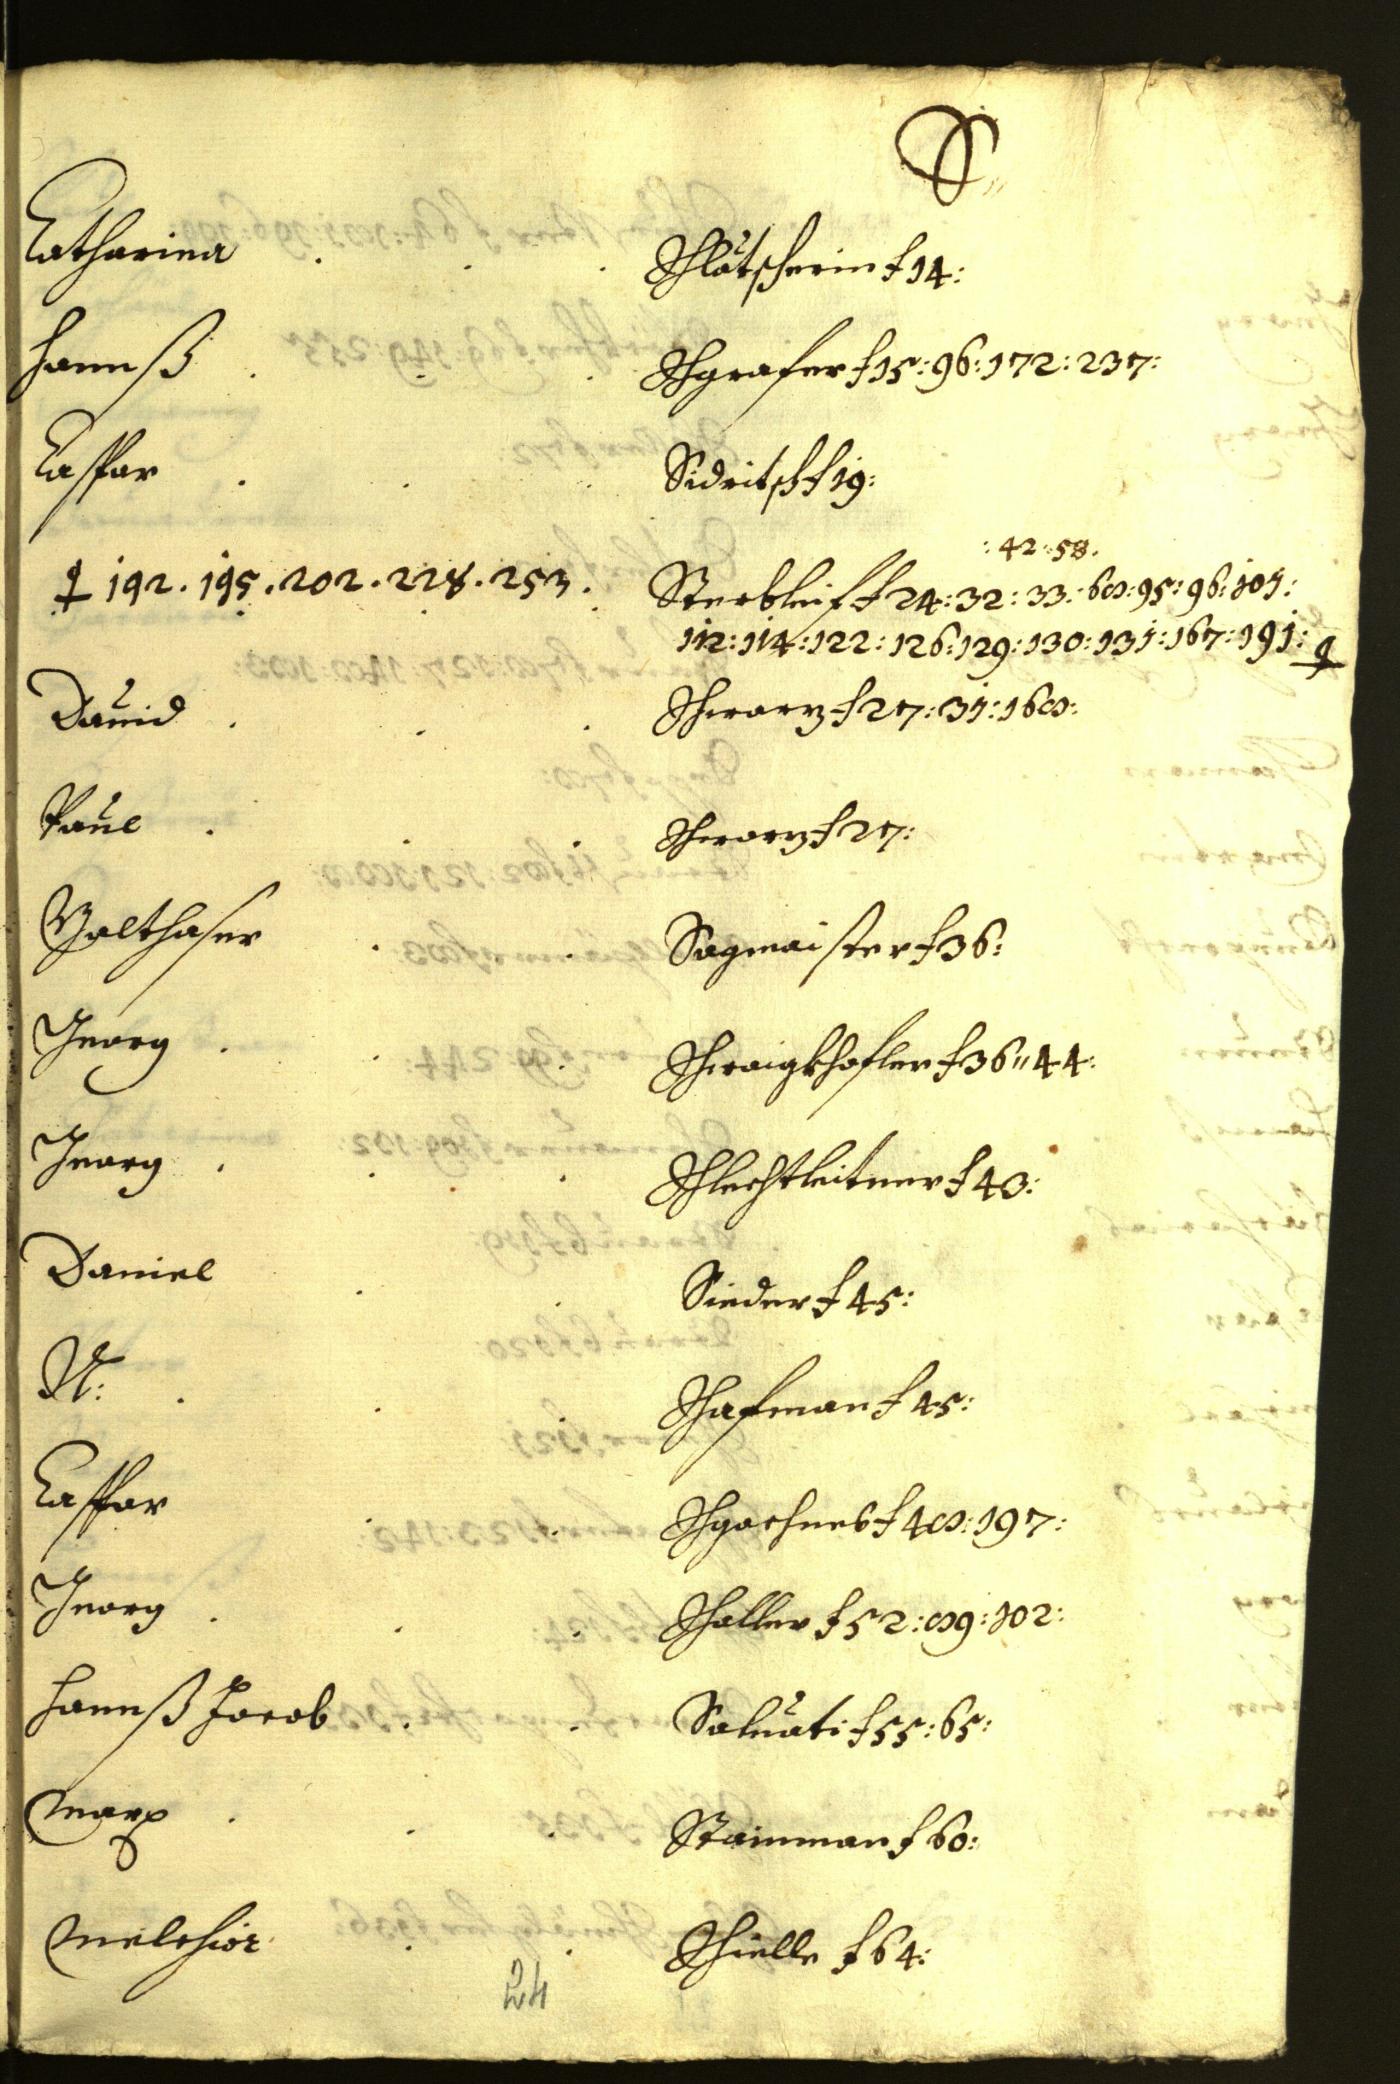 S
Catharina . . . Schlätscherin f 14:
Hannß . . . Schgrafer f 15: 96: 172: 237:
Caspar . . . Sidritsch f 19:
: 42: 58.
192. 195. 202. 228. 253. Sterbleif f 24: 32: 33: 68: 95: 96: 101:
112: 114: 122: 126: 129: 130: 131: 167: 191:
Dauid . . . Schwarz f 27: 31: 168:
Paul . . . Schwarz f 27:
Balthaser . . Sagmaister f 36:
Georg . . . Schwaigkhofler f 36 " 44:
Georg . . . Schlechtleitner f 43:
Daniel . . Sieder f 45:
N: . . . Schafman f 45:
Caspar . . Schgochneb f 48: 197:
Georg . . . Schaller f 52: 89: 102:
Hannß Jacob . . Saluati f 55: 65:
Marx . . . Stainman f 60:
Melchior . . Schielle f 64:
24